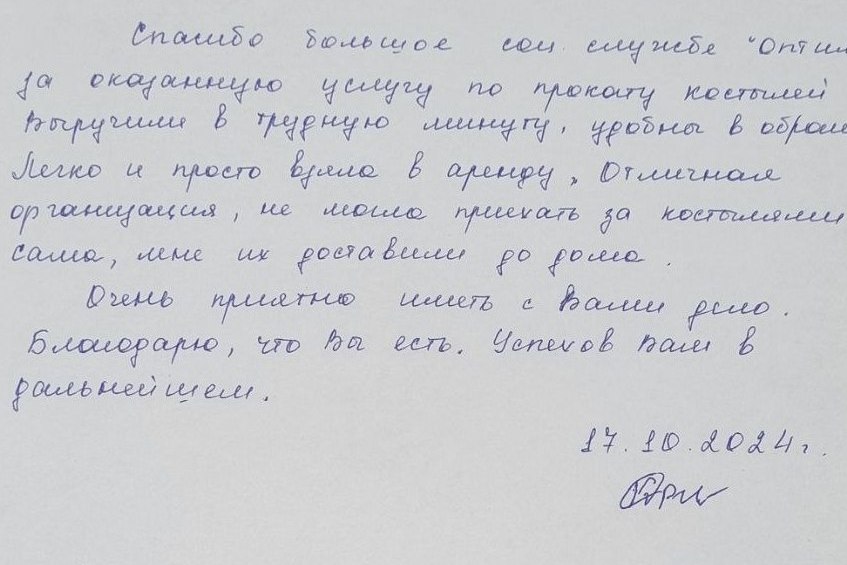 Спасибо большое соц. службе "Опти
за оказанную услугу по прокату костылей
Выручили в трудную минуту, удобны в обра
Легко и просто взяла в аренду. Отличная
организация, не могла приехать за костылями
сама, мне их доставили до дома.
Очень приятно иметь с Вами дело.
Благодарю, что Вы есть. Успехов Вам в
дальнейшем.
17.10.2024г.